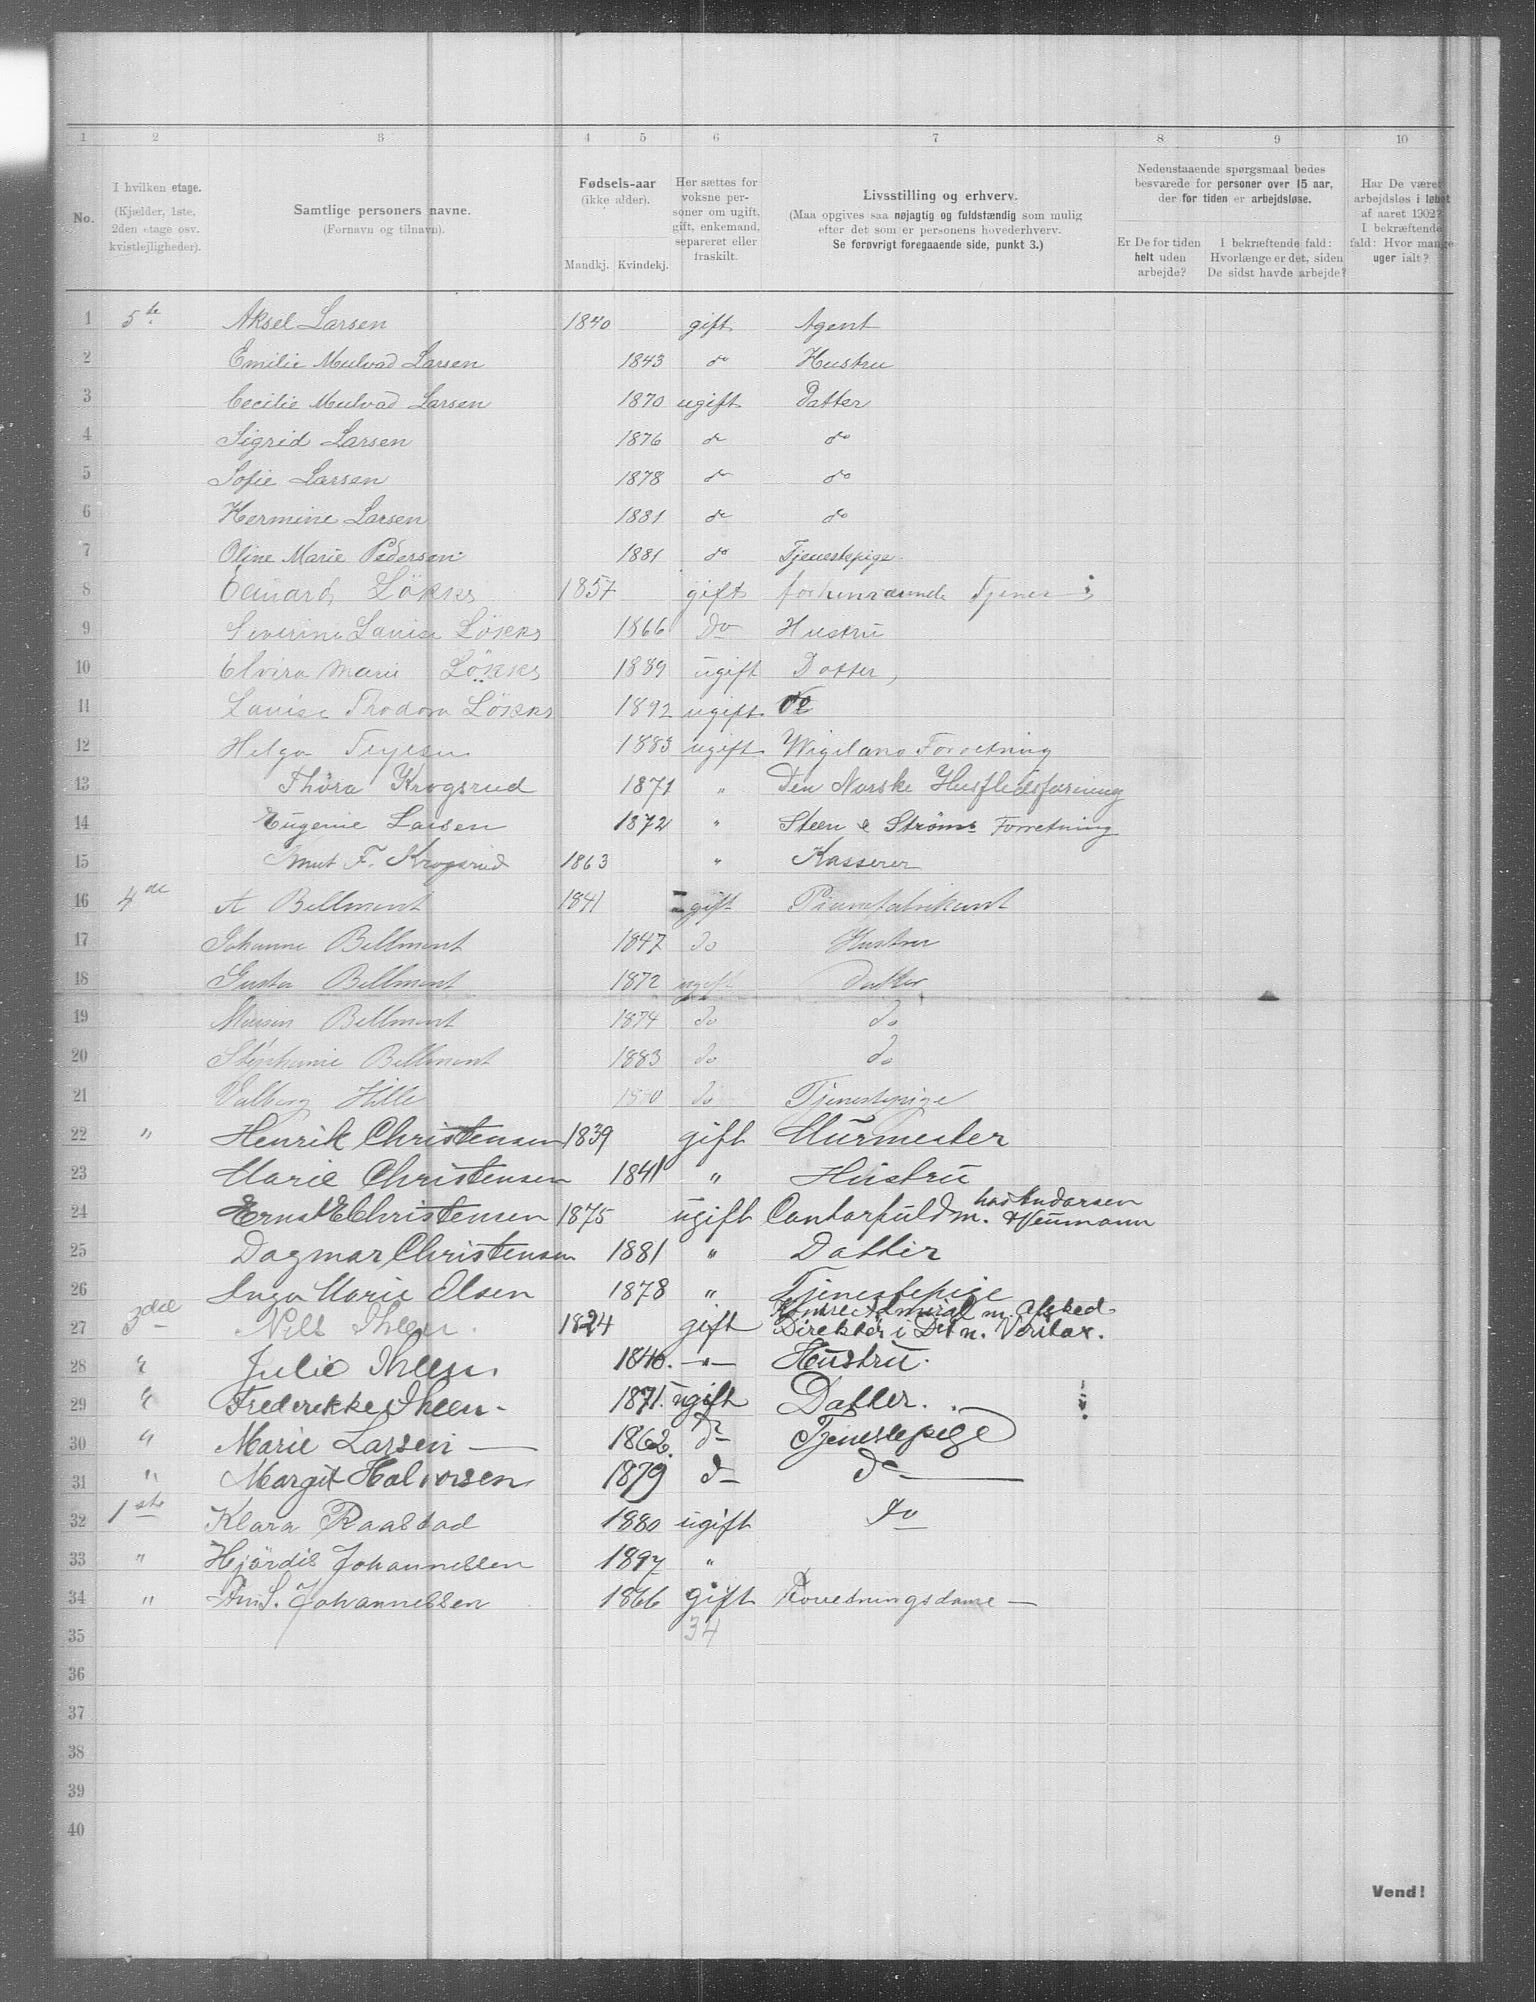 1 2 3 4 5 6 7 8 9 10
No.
I hvilken etage.
(Kjælder, 1ste,
2den etage osv.
kvistlejligheder).
Samtlige personers navne.
(Fornavn og tilnavn).
Fødsels-aar
(ikke alder).
Mandkj. Kvindekj.
Her sættes for
voksne per-
soner om ugift,
gift, enkemand,
separeret eller
fraskilt.
Livsstilling og erhverv.
(Maa opgives saa nøjagtig og fuldstændig som mulig
efter det som er personens hovederhverv.
Se forøvrigt foregaaende side, punkt 3.)
Nedenstaaende spørgsmaal bedes
besvarede for personer over 15 aar,
der for tiden er arbejdsløse.
Er De for tiden
helt uden
arbejde?
I bekræftende fald:
Hvorlænge er det, siden
De sidst havde arbejde?
Har De været
arbejdsløs i løbet
af aaret 1902?
I bekræftende
fald: Hvor mange
uger ialt?
1 5te Aksel Larsen 1840 gift Agent
2 Emilie Mulvad Larsen 1843 do Hustru
3 Cecilie Mulvad Larsen 1870 ugift Datter
4 Sigrid Larsen 1876 do do
5 Sofie Larsen 1878 do do
6 Hermine Larsen 1881 do do
7 Oline Marie Pedersen 1881 do Tjenestepige
8 Edvard Lökks 1857 gift forhenværende Tjener
9 Severine Lauise Lökks 1866 Do Hustru
10 Elvira Marie Lökks 1889 ugift Datter,
11 Lauise Trodora Lökks 1892 ugift do
12 Helga 1883 ugift Wigelans Forretning
13 Thora Krogsrud 1871 " Den Norske Husflidsforening
14 Eugenie Larsen 1872 " Steen & Strøms Forretning
15 Knut F. Krogsrud 1863 " Kasserer
16 4de A Bellmont 1841 gift Pianofabrikant
17 Johanne Bellmont 1847 do Hustru
18 Bellmont 1872 ugift Datter
19 Bellmont 1874 do do
20 Stephanie Bellmont 1883 do do
21 Valborg Hille do Tjenestepige
22 " Henrik Christensen 1839 gift Murmester
23 Marie Christensen 1841 " Hustru
24 Ernst E Christensen 1875 ugift Contorfuldm. hos Andersen & Neumann
25 Dagmar Christensen 1881 " Datter
26 Inga Marie Olsen 1878 " Tjenestepige
27 3die Nils Ihlen. 1824 gift Kontre Admiral m. Afsked.
Direktör i Det n. Veritas.
28 " Julie Ihlen. 1840. " Hustru.
29 " Frederikke Ihlen 1871. ugift Datter.
30 " Marie Larsen 1862. do Tjenestepige
31 " Margit Halvorsen 1879 do do
32 1ste Klara Raastad 1880 ugift do
33 " Hjördis Johannessen 1897 "
34 " S. Johannessen 1866 gift Forretningsdame
35 34
36
37
38
39
40
Vend!